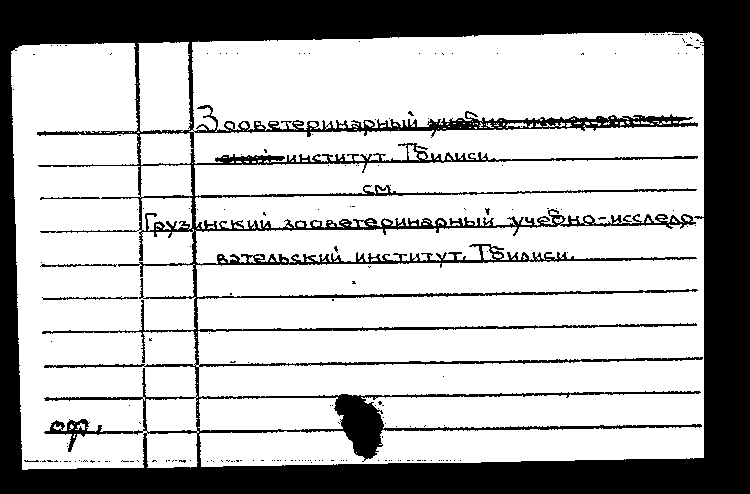 Зооветеринарный учебно-исследователь-
ский институт. Тбилиси.
см.
Грузинский зооветеринарный учебно-исследо-
вательский институт. Тбилиси.
оф.